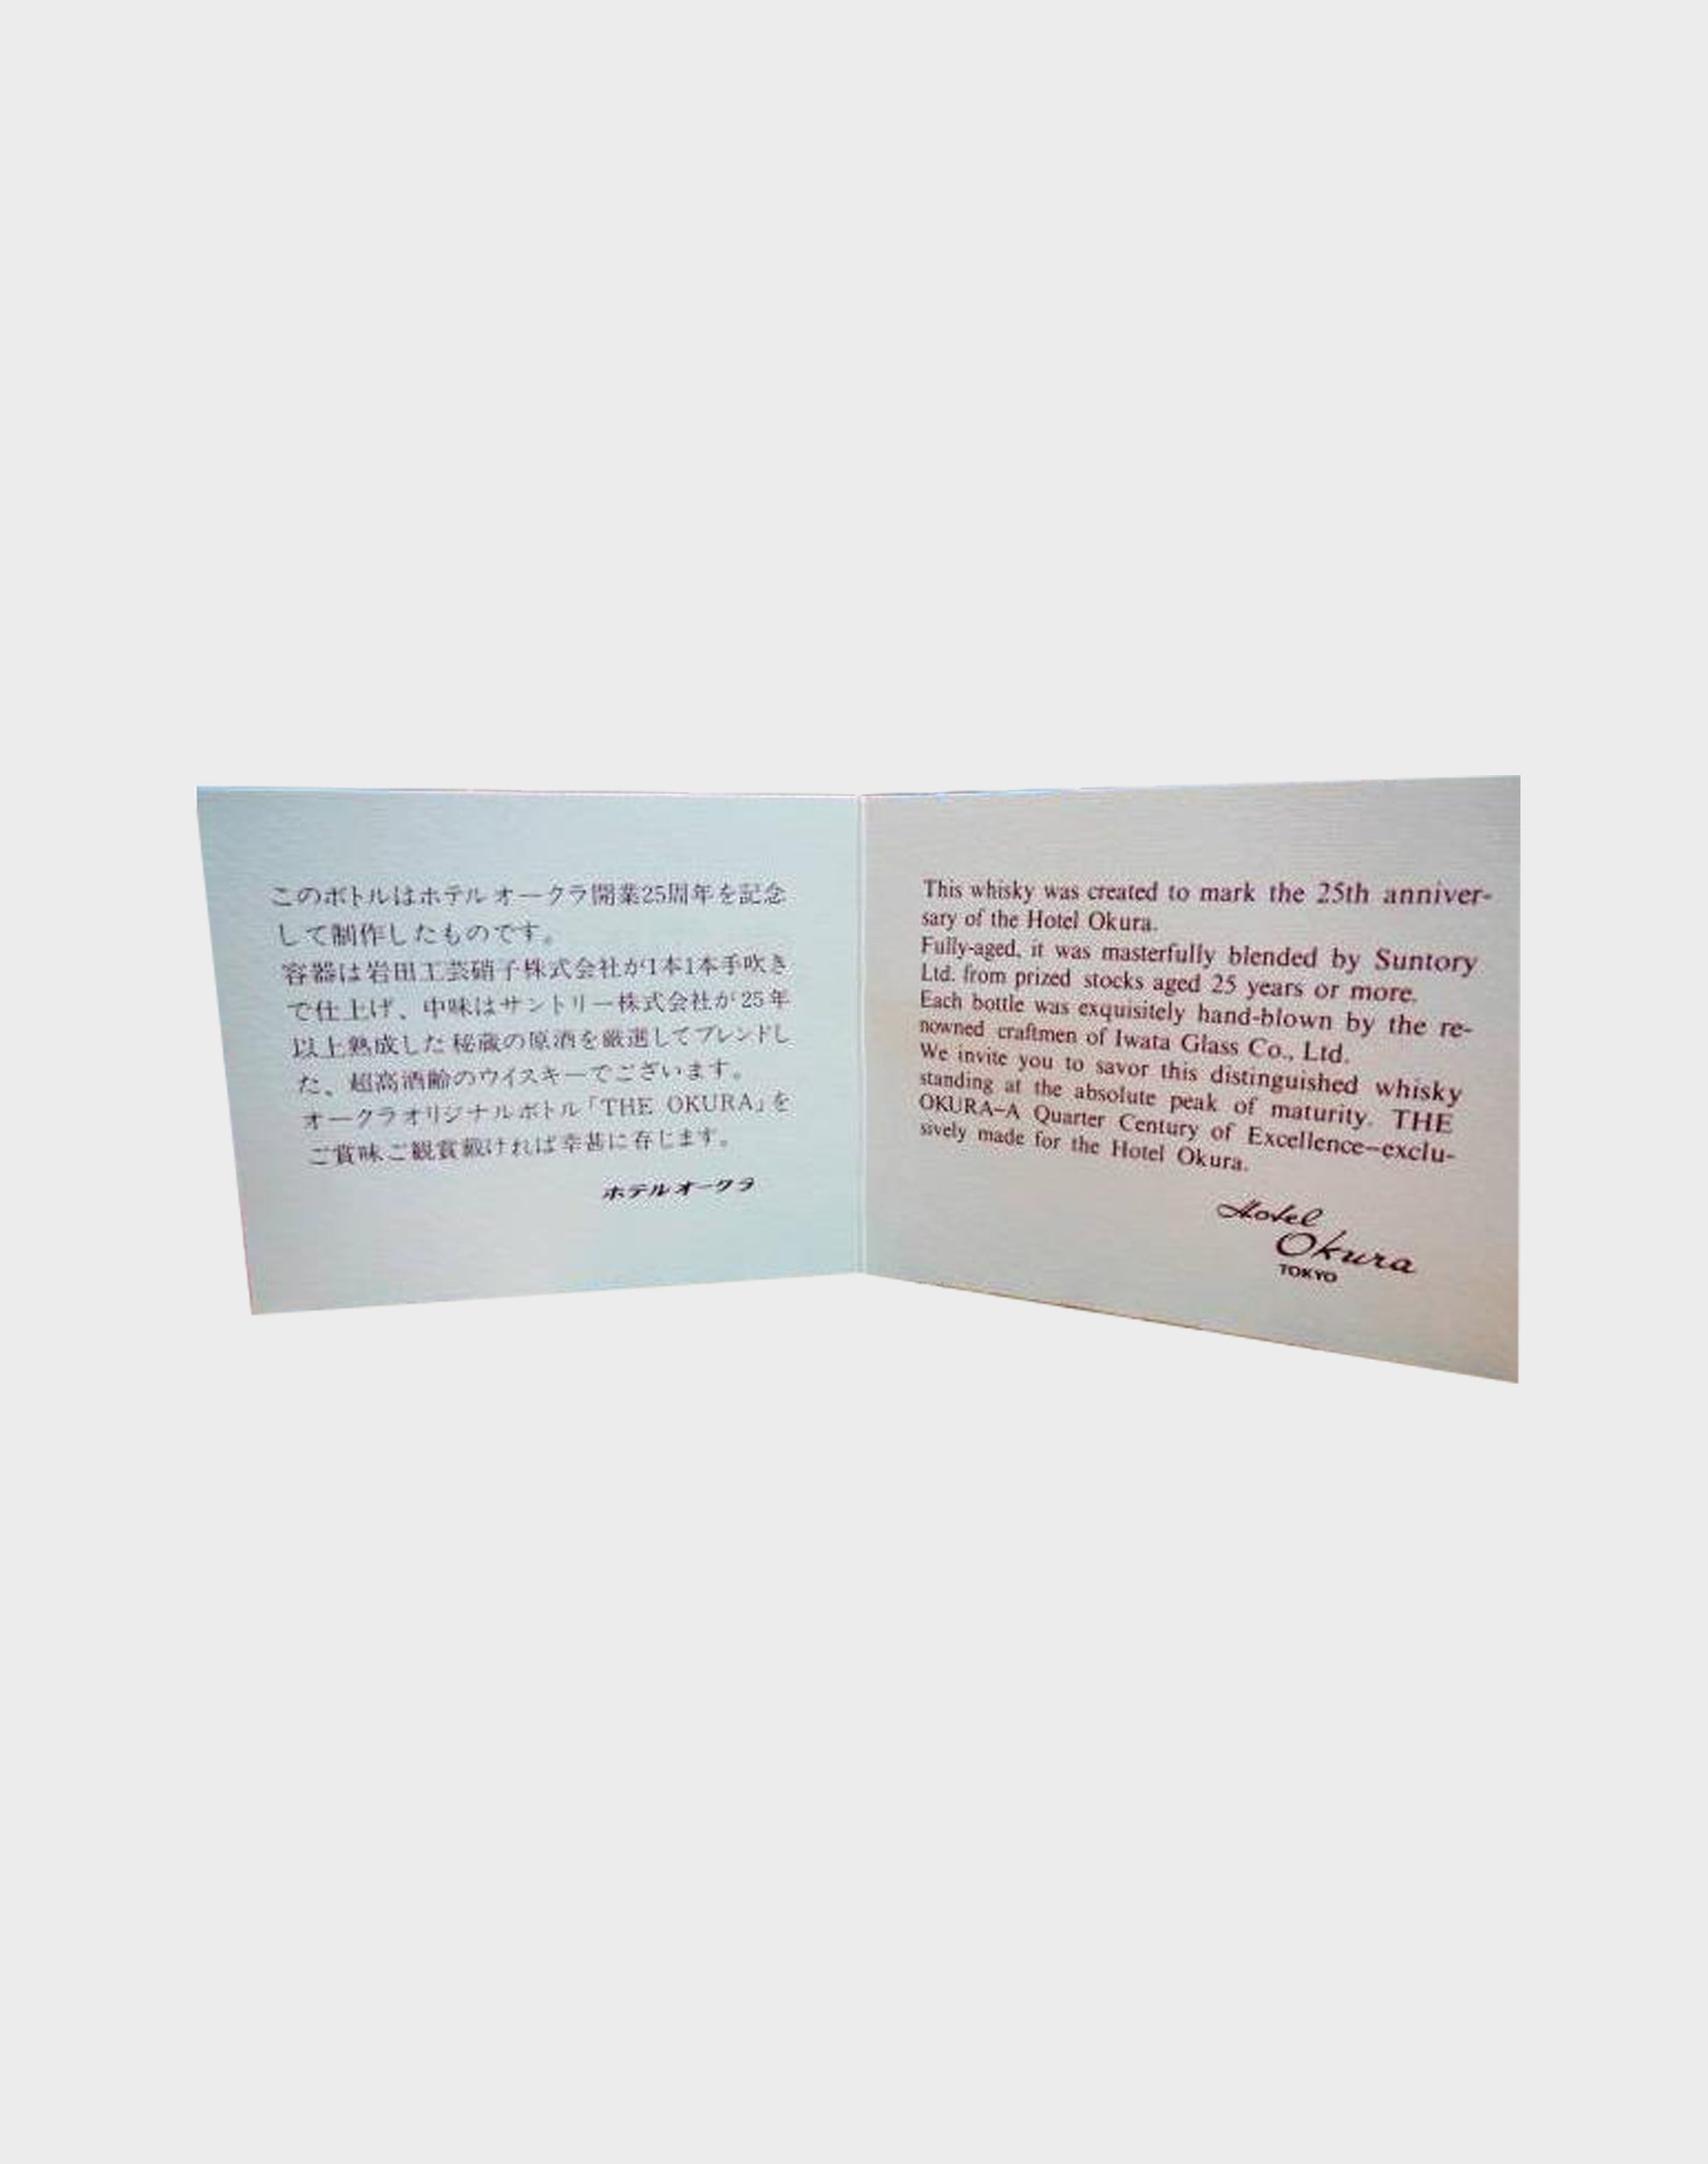 このボトルはホテルオークラ開業25周年を記念
して制作したものです。
容器は岩田工芸硝子株式会社が1本1本手吹き
で仕上げ、中味はサントリー株式会社が25年
以上熟成した秘蔵の原酒を厳選してブレンドし
た、超高酒齢のウイスキーでございます。
オークラオリジナルボトル「THE OKURA」を
ご賞味ご観賞戴ければ幸甚に存じます。
ホテルオークラ
This whisky was created to mark the 25th anniver-
sary of the Hotel Okura.
Fully-aged, it was masterfully blended by Suntory
Ltd. from prized stocks aged 25 years or more.
Each bottle was exquisitely hand-blown by the re-
nowned craftmen of Iwata Glass Co., Ltd.
We invite you to savor this distinguished whisky
standing at the absolute peak of maturity. THE
OKURA–A Quarter Century of Excellence–exclu-
sively made for the Hotel Okura.
Hotel
Okura
TOKYO